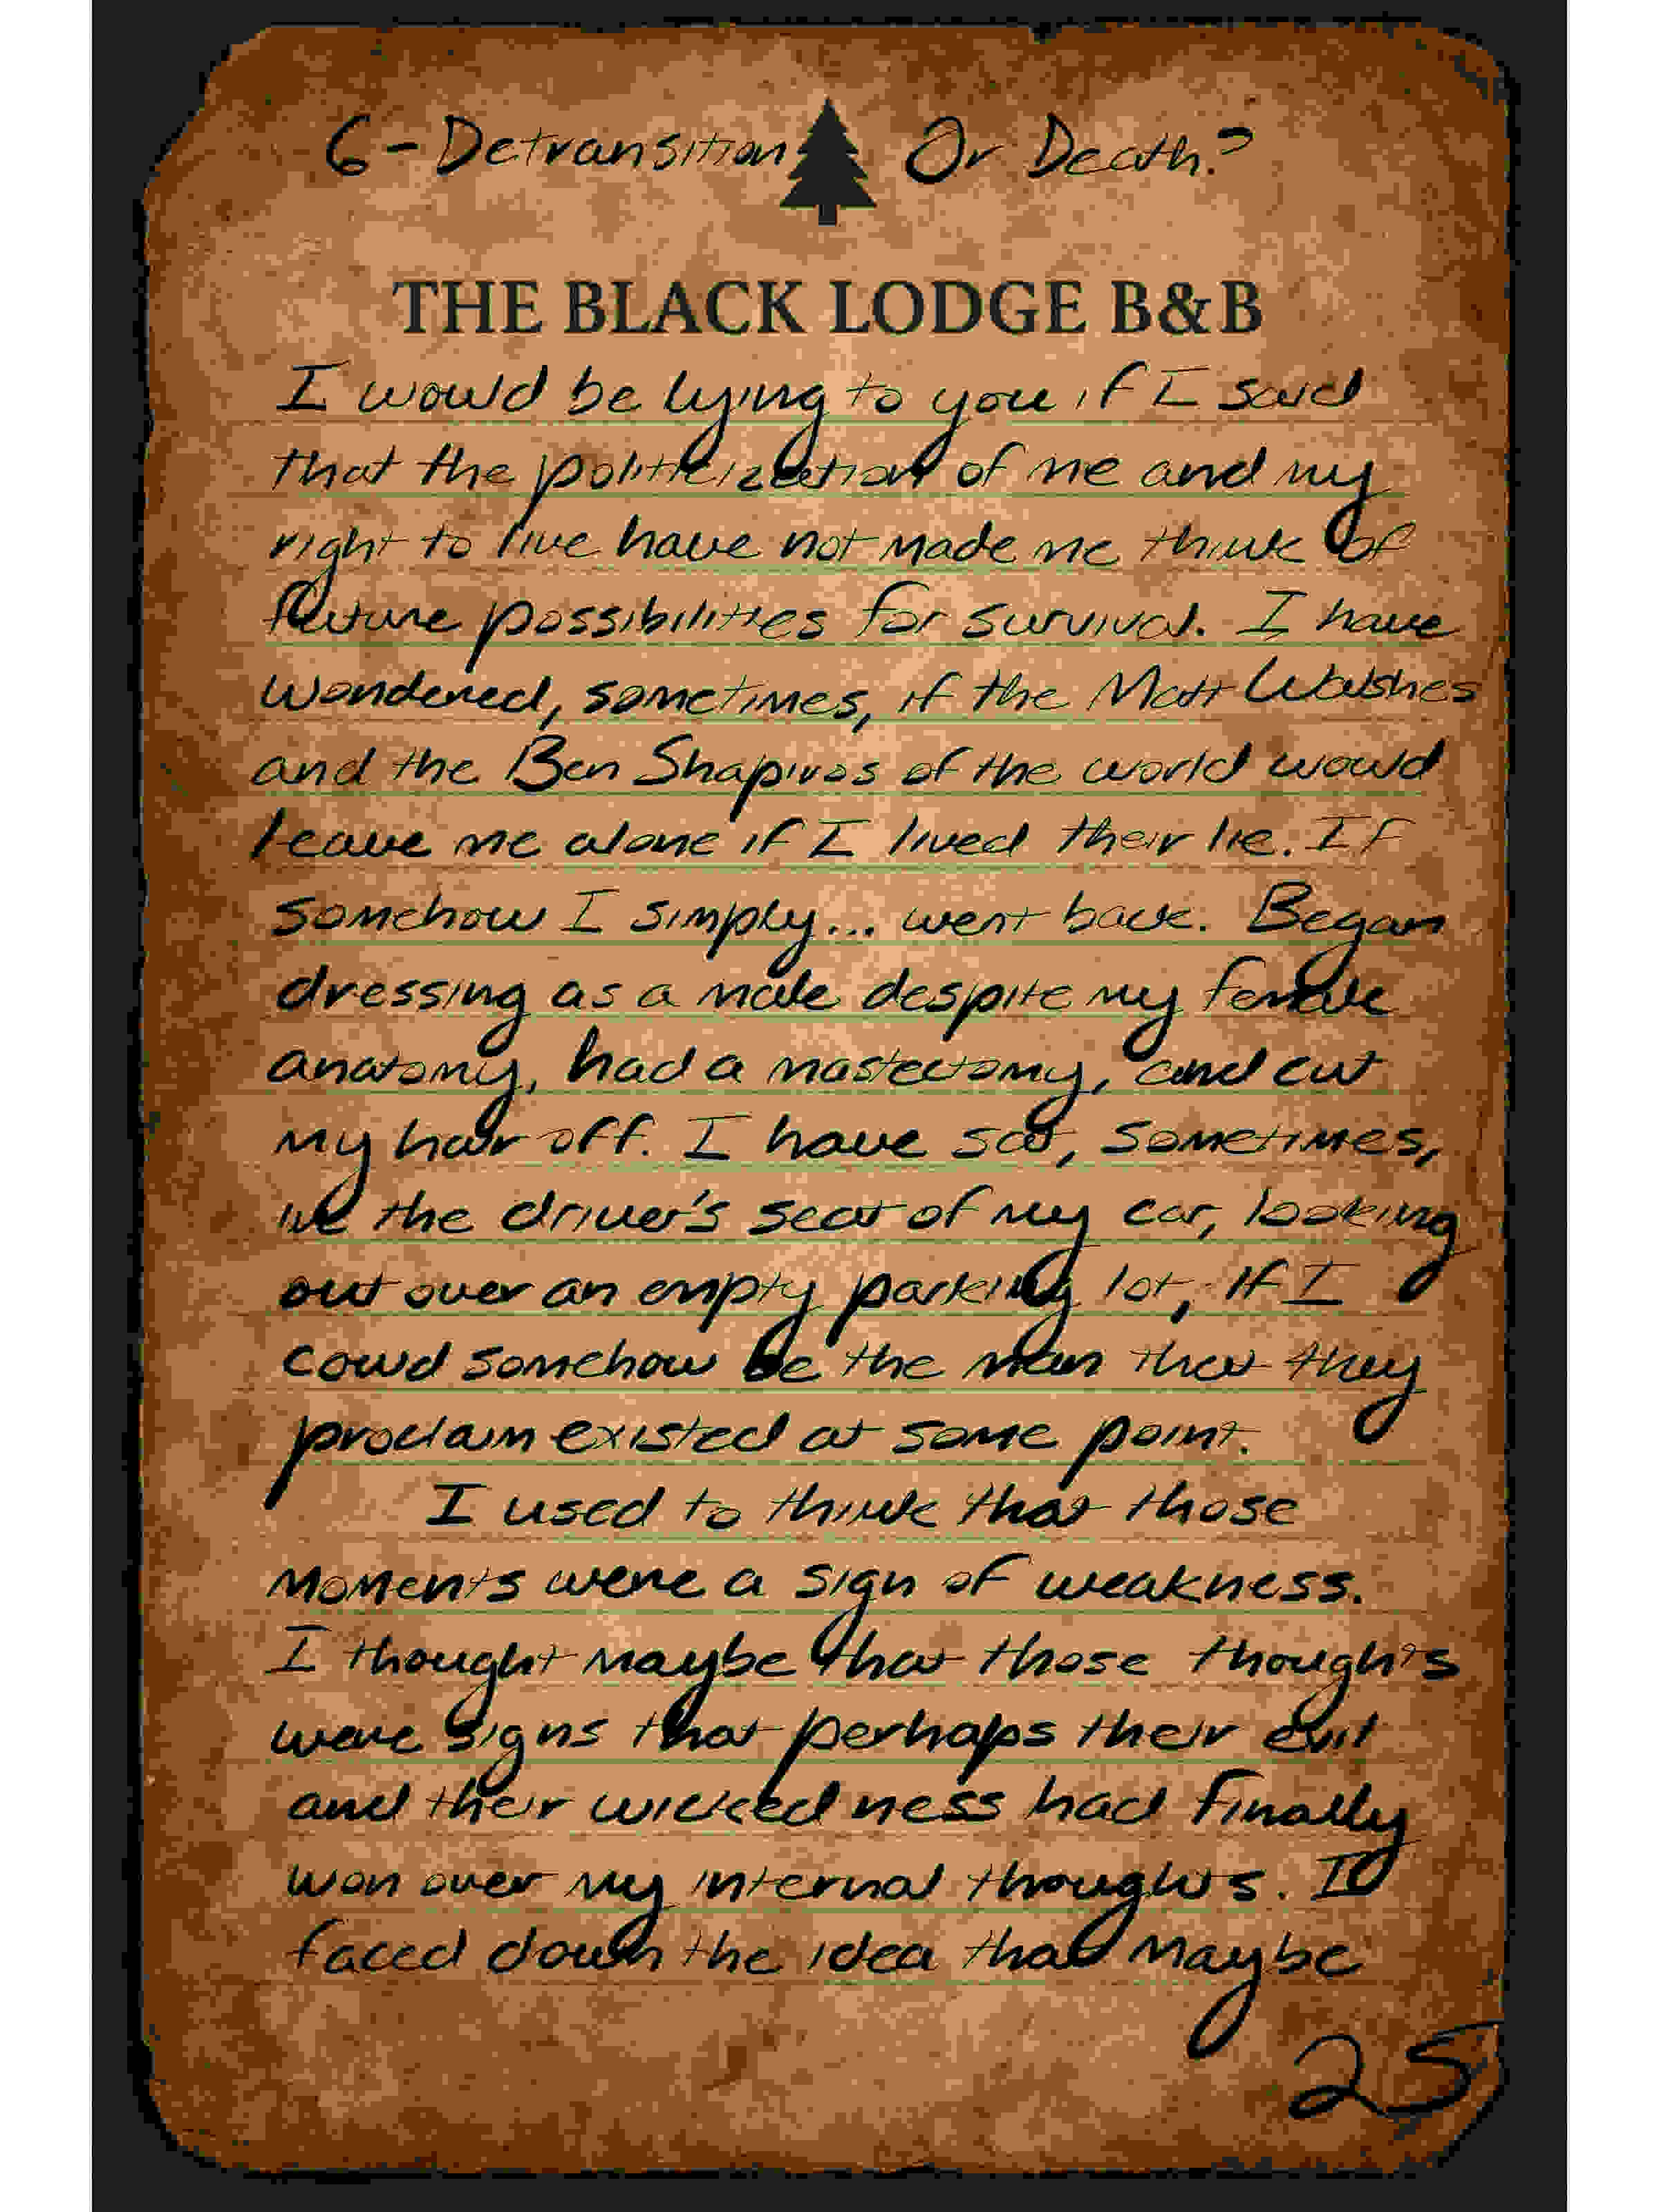 6-Detransition Or Death?
THE BLACK LODGE B&B
I would be lying to you if I said
that the politicization of me and my
right to live have not made me think of
future possibilities for survival. I have
wondered, sometimes, if the Matt Walshes
and the Ben Shapiros of the world would
leave me alone if I lived their lie. If
somehow I simply... went back. Began
dressing as a male despite my female
anatomy, had a mastectomy, and cut
my hair off. I have sat, sometimes,
in the driver's seat of my car, looking
out over an empty parking lot, if I
could somehow be the man that they
proclaim existed at some point.
I used to think that those
moments were a sign of weakness.
I thought maybe that those thoughts
were signs that perhaps their evil
and their wickedness had finally
won over my internal thoughts. I
faced down the idea that maybe
25